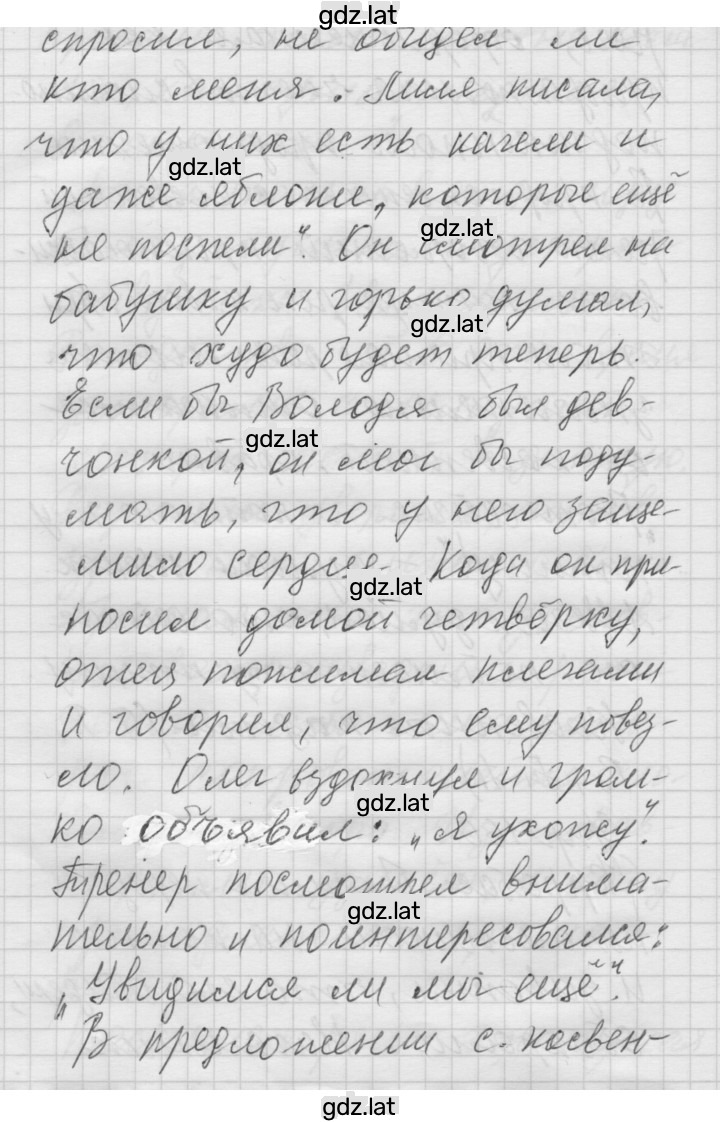 gdz.lat
спросил, не обидел ли
кто меня. Лиля писала,
что у них есть качели и
gdz.lat
даже яблоки, которые ещё
gdz.lat
не поспели". Он смотрел на
бабушку и горько думал,
gdz.lat
что худо будет теперь.
Если бы Володя был дев-
gdz.lat
чонкой, он мог бы поду-
мать, что у него заще-
мило сердце. Когда он при-
gdz.lat
носил домой четвёрку,
отец пожимал плечами
и говорил, что ему повез-
ло. Олег вздохнул и гром-
gdz.lat
ко объявил: „Я ухожу".
Тренер посмотрел внима-
gdz.lat
тельно и поинтересовался:
„Увидимся ли мы ещё".
В предложении с косвен-
gdz.lat